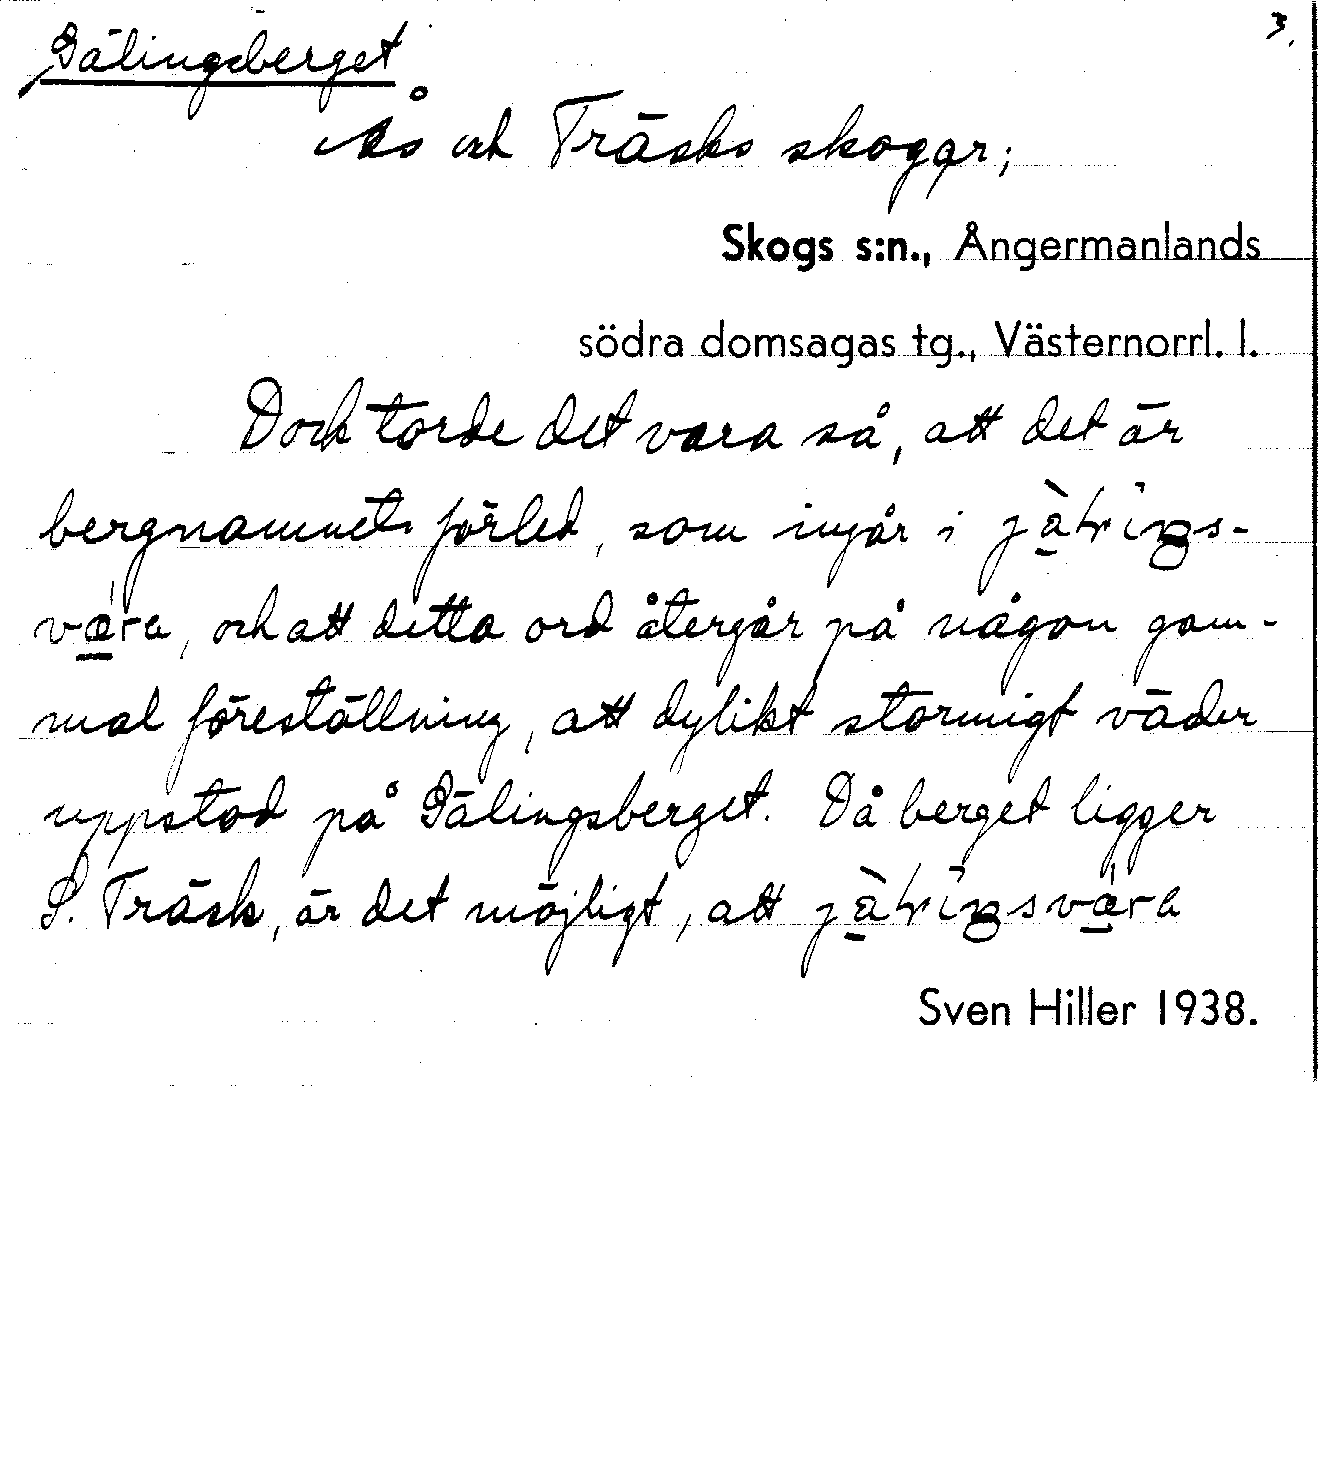 Gälingsberget 3.
Ås och Träsks skogar;
Skogs s:n., Ångermanlands
södra domsagas tg., Västernorrl. l.
Dock torde det vara så, att det är
bergnamnets förled, som ingår i
och att detta ord återgår på någon gam-
mal föreställning, att dylikt stormigt väder
uppstod på Gälingsberget. Då berget ligger
S. Träsk, är det möjligt, att
Sven Hiller 1938.